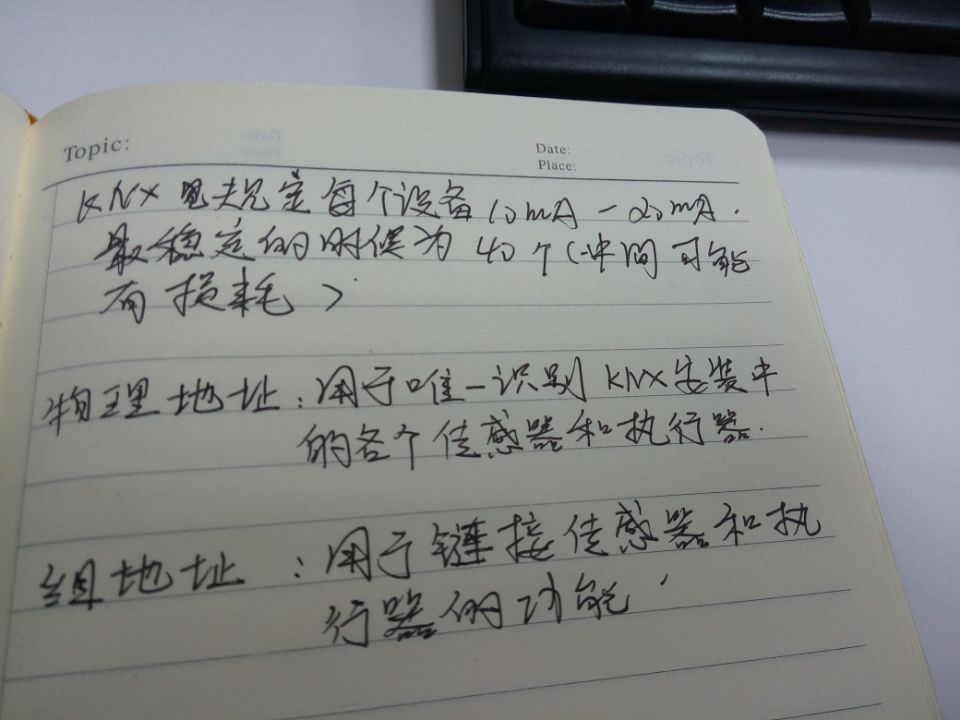 Topic:
Date:
Place:
KNX 规定每个设备 10mA-20mA.
最稳定的时侯为 40个(中间可能
有损耗)
物理地址:用于唯一识别 KNX安装中
的各个传感器和执行器.
组地址:用于链接传感器和执
行器的功能